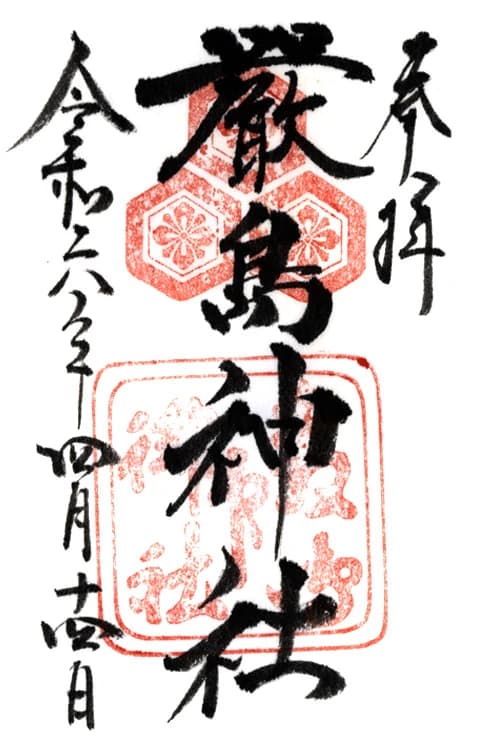 奉拝
厳島神社
令和六年四月十四日